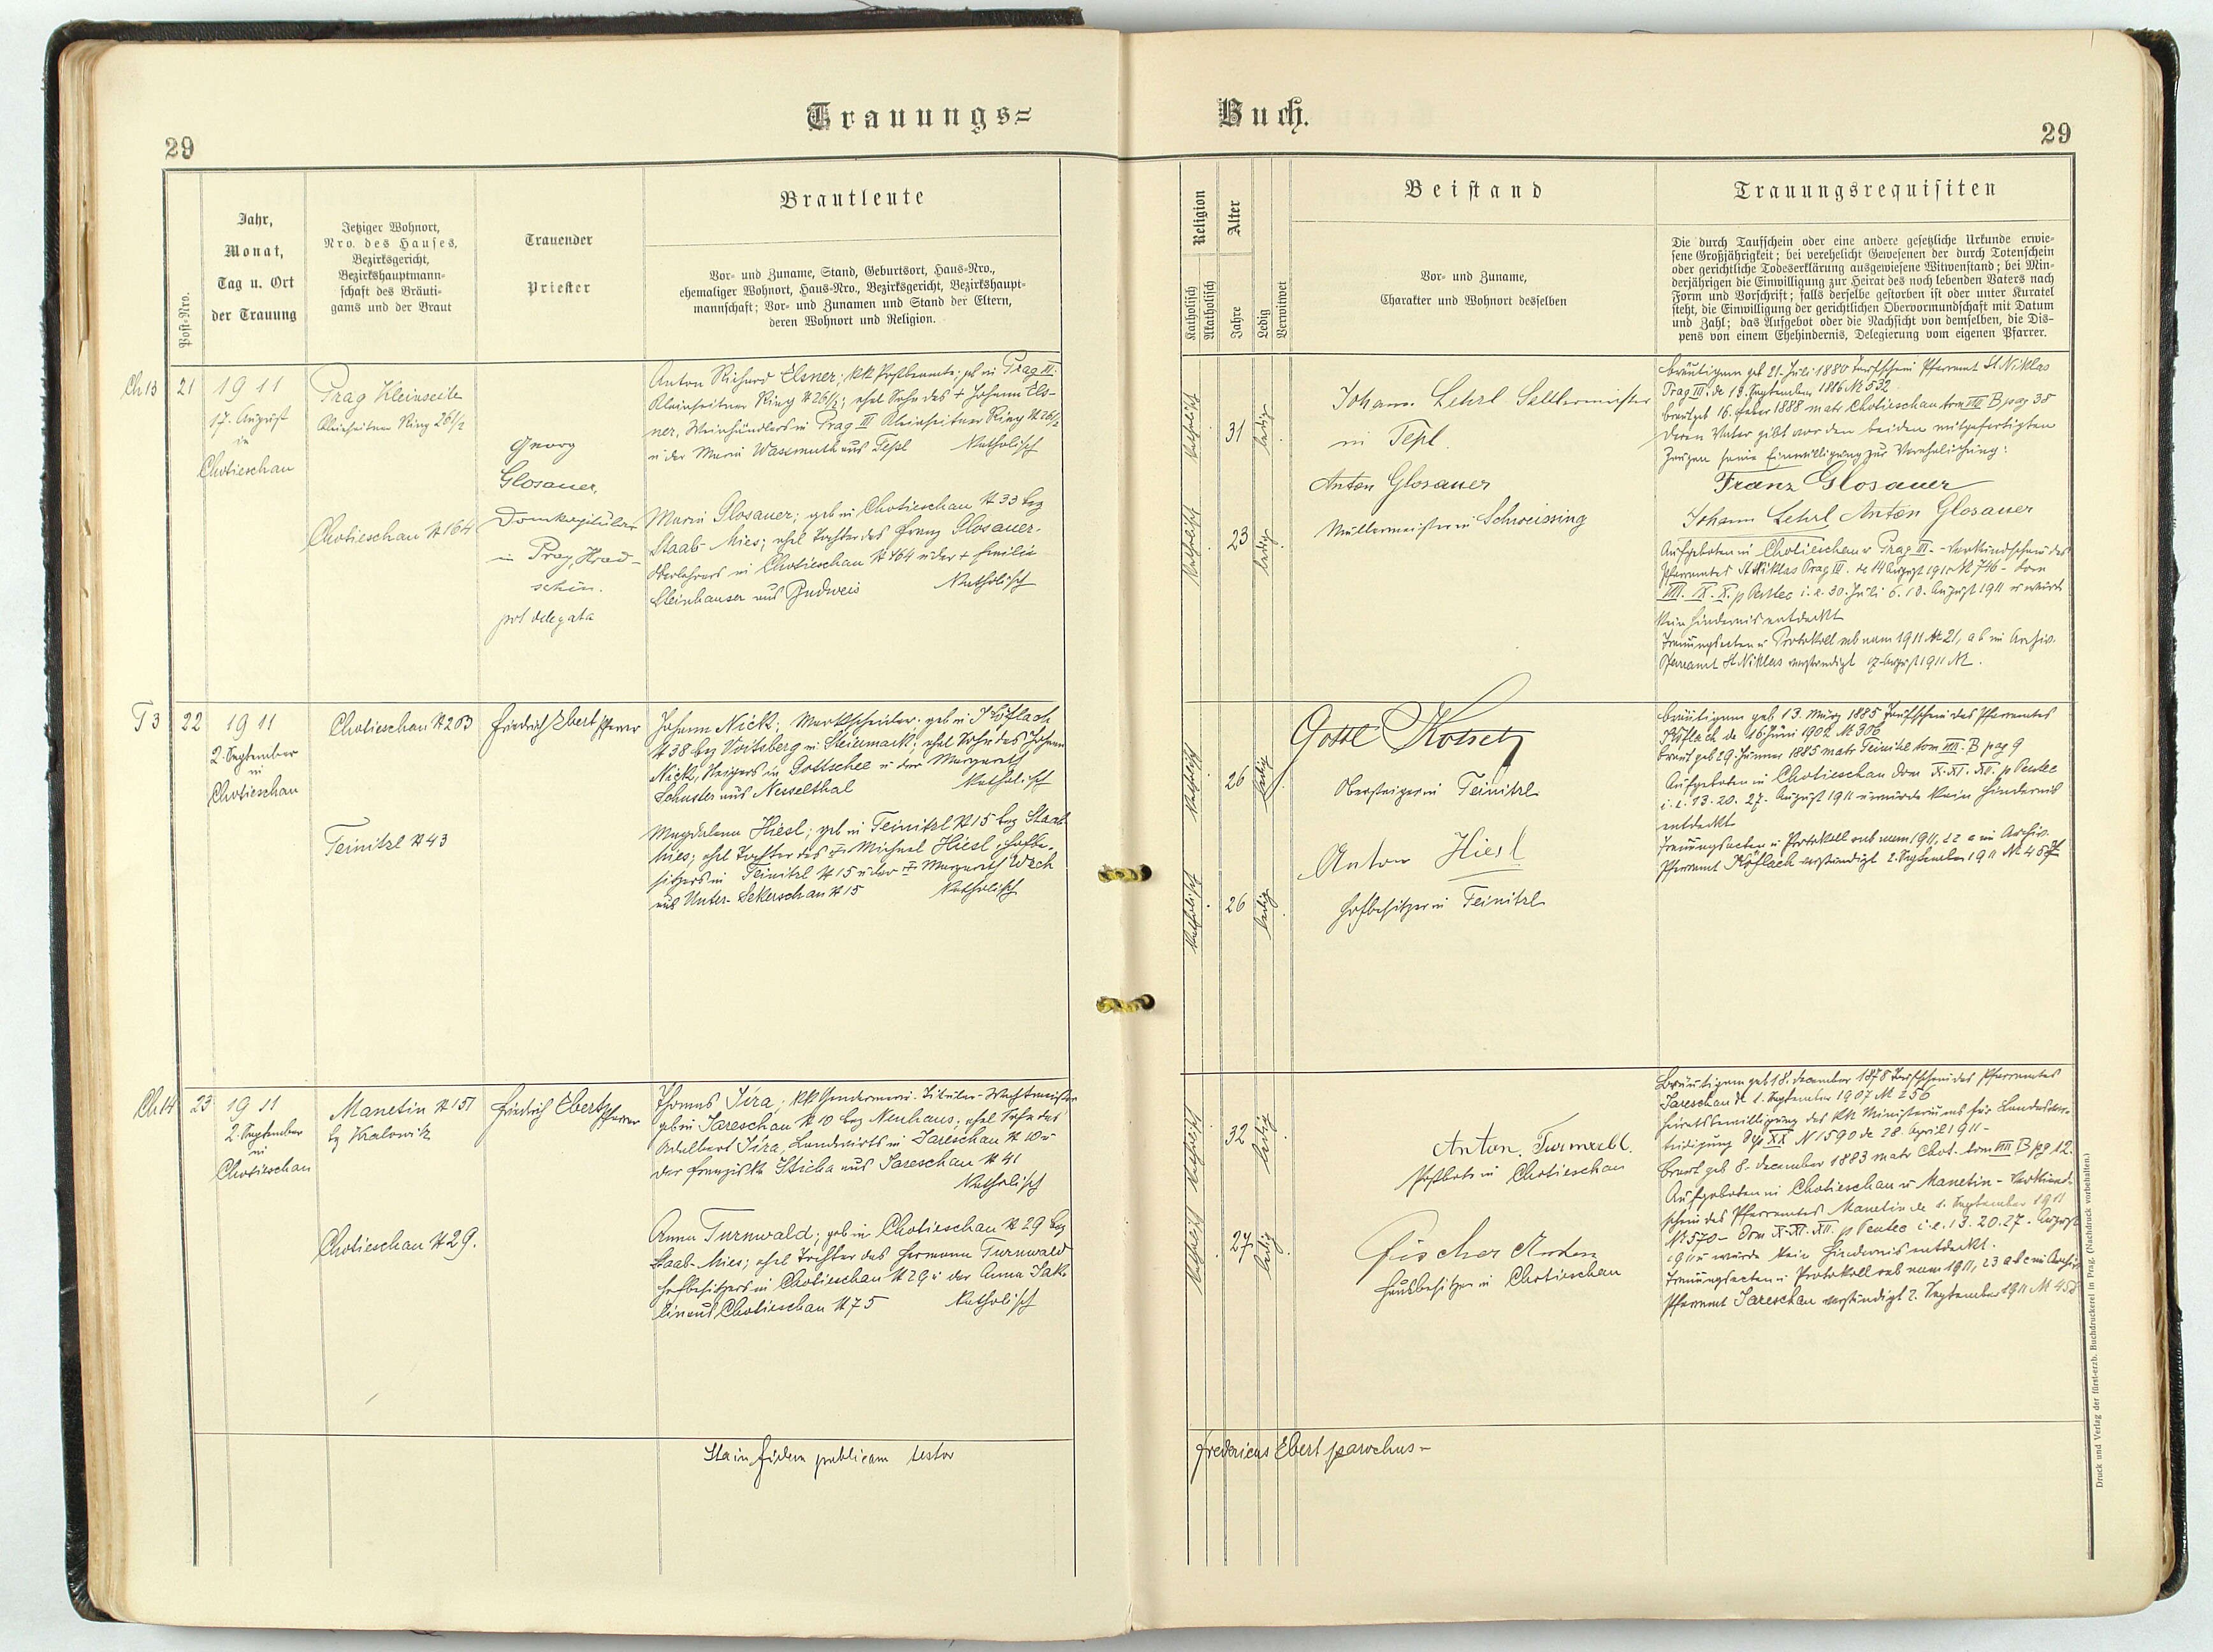 Trauungs=
Buch.
29
29
Post-Nro.
Jahr,
Monat,
Tag u. Ort
der Trauung
Jetziger Wohnort,
Nro. des Hauses,
Bezirksgericht,
Bezirkshauptmann-
schaft des Bräuti-
gams und der Braut
Trauender
Priester
Brautleute
Vor- und Zuname, Stand, Geburtsort, Haus-Nro.,
ehemaliger Wohnort, Haus-Nro., Bezirksgericht, Bezirkshaupt-
mannschaft; Vor- und Zunamen und Stand der Eltern,
deren Wohnort und Religion.
Religion
Katholisch
Akatholisch
Alter
Jahre
Ledig
Verwitwet
Beistand
Vor- und Zuname,
Charakter und Wohnort desselben
Trauungsrequisiten
Die durch Taufschein oder eine andere gesetzliche Urkunde erwie-
sene Großjährigkeit; bei verehelicht Gewesenen der durch Totenschein
oder gerichtliche Todeserklärung ausgewiesene Witwenstand; bei Min-
derjährigen die Einwilligung zur Heirat des noch lebenden Vaters nach
Form und Vorschrift; falls derselbe gestorben ist oder unter Kuratel
steht, die Einwilligung der gerichtlichen Obervormundschaft mit Datum
und Zahl; das Aufgebot oder die Nachsicht von demselben, die Dis-
pens von einem Ehehindernis, Delegierung vom eigenen Pfarrer.
Ch 13
21
1911
17. August
in
Chotieschau
Prag Kleinseite
Kleinseitner Ring 26 1/2
Chotieschau N 164
Georg
Glosauer,
Domkapitular
in Prag, Hrad-
schin.
prt delegata
Anton Richard Elsner; kk Postbeamte; geb in Prag III.
Kleinseitner Ring N 26 1/2; ehel Sohn des + Johann Els-
ner, Weinhändlers in Prag III Kleinseitner Ring N 26 1/2
u der Maria Wassmuth aus Tepl Katholisch
Maria Glosauer; geb in Chotieschau N 33 bez
Staab-Mies; ehel Tochter des Franz Glosauer
Oberlehrers in Chotieschau N 164 u der + Emilie
Steinhauser aus Budweis Katholisch
katholisch
31
ledig
katholisch
23
ledig
Johann Lehrl Sattlermeister
in Tepl.
Anton Glosauer
Müllermeister in Schweissing
Bräutigam geb 21. Juli 1880 Taufschein Pfarramt St Niklas
Prag III. de 13. September 1886 N 532
Braut geb 16. 1888 matr Chotieschau tom VIII B pag 38
Deren Vater gibt vor den beiden mitgefertigten
Zeugen seine Einwilligung zur Verehelichung:
Franz Glosauer
Johann Lehrl Anton Glosauer
Aufgeboten in Chotieschau u Prag III. - Verkündschein des
Pfarramtes St Niklas Prag III. de 14 August 1911 N 746 - dom
VIII. IX. X. p Pentec i. e. 30. Juli 6. 13. August 1911 u wurde
kein Hindernis entdeckt
Trauungsacten u Protokoll sub num 1911 N 21, a b im Archiv.
Pfarramt St Niklas verständigt 17. August 1911 N .
T 3
22
1911
2. September
in
Chotieschau
Chotieschau N 203
Teinitzl N 43
Friedrich Ebert Pfarrer
Johann Nick; Marktscheider; geb in Köflach
N 38 bez Voitsberg in Steiermark; ehel Sohn des Johann
Nick, in Gottschee u der Margareth
Schuster aus Nesselthal Katholisch
Magdalena Hiesl; geb in Teinitzl N 15 bez Staab-
Mies; ehel Tochter des Michael Hiesl, Hofbe-
sitzers in Teinitzl N 15 u der Margareth Wech
aus Unter-Sekerschan N 15 Katholisch
katholisch
26
ledig
katholisch
26
ledig
Gottl Kotschy
Obersteiger in Teinitzl
Anton Hiesl
Hofbesitzer in Teinitzl
Bräutigam geb 13. März 1885 Taufschein des Pfarramtes
Köflach de 16 Juni 1902 N 306
Braut geb 29. Jänner 1885 matr Teinitzl tom VIII. B pag 9
Aufgeboten in Chotieschau dom X. XI. XII. p Pentec
i. e. 13. 20. 27. August 1911 u wurde kein Hindernis
entdeckt
Trauungsacten u Protokoll sub num 1911, 22 a im Archiv.
Pfarramt Köflach verständigt 2. September 1911 N 457
Ch 14
23
1911
2. September
in
Chotieschau
Manetin N 151
bz Kralowitz
Chotieschau N 29.
Friedrich Ebert Pfarrer
Thomas Jíra; kk Gendarmerie-Titular-Wachtmeister
geb in Jareschau N 10 bez Neuhaus; ehel Sohn des
Adalbert Jíra, Landwirts in Jareschau N 10 u
der Franziska Sticha aus Jareschau N 41
Katholisch
Anna Turnwald; geb in Chotieschau N 29 bez
Staab-Mies; ehel Tochter des Hermann Turnwald
Hofbesitzers in Chotieschau N 29 u der Anna Jak-
lin aus Chotieschau N 75 Katholisch
katholisch
32
ledig
katholisch
27
ledig
Anton Turnwald.
Postbote in Chotieschau
Fischer Anton
Hausbesitzer in Chotieschau
Bräutigam geb 18. December 1878 Taufschein des Pfarramtes
Jareschau de 1. September 1907 N 256
Heiratsbewilligung des kk Ministeriums für Landesver-
teidigung Dep XX N 1590 de 28. April 1911 -
Braut geb 8. December 1883 matr Chot. tom VIII B pg 12.
Aufgeboten in Chotieschau u Manetin - Verkünd-
schein des Pfarramtes Manetin de 1. September 1911
N 570 - Dom X. XI. XII. p Pentec i. e. 13. 20. 27. August
1911 u wurde kein Hindernis entdeckt.
Trauungsacten u Protokoll sub num 1911, 23 a b c im Archiv
Pfarramt Jareschau verständigt 2. September 1911 N 458
Ita in fidem publicam testor
Fredericus Ebert parochus -
Druck und Verlag der fürst-erzb. Buchdruckerei in Prag. (Nachdruck vorbehalten.)